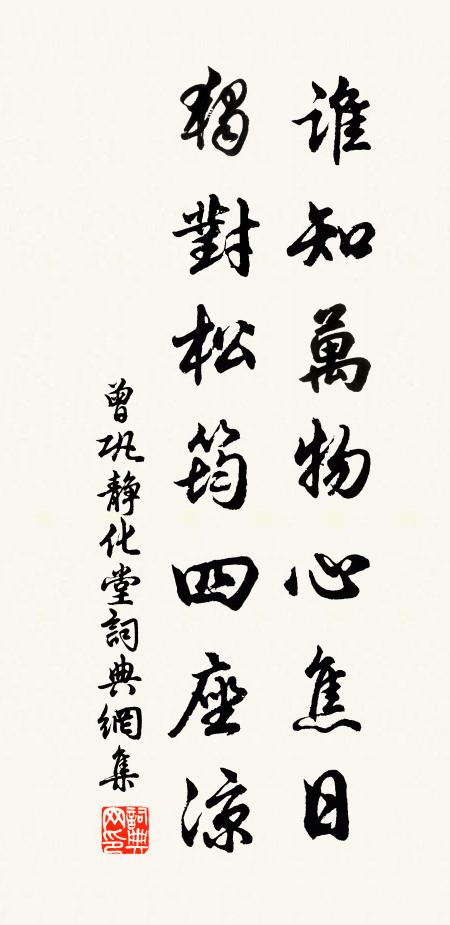 誰知萬物心焦日
獨對松筠四座涼
曾巩靜化堂詞典網集
詞典網印